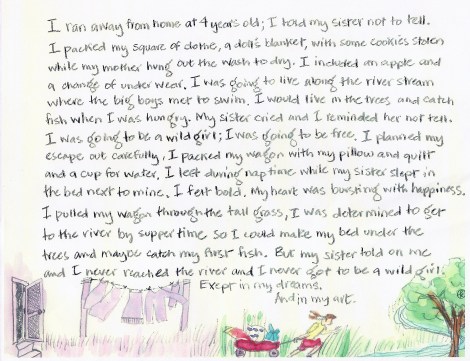 I ran away from home at 4 years old; I told my sister not to tell.
I packed my square of clothe, a doll's blanket, with some cookies stolen
while my mother hung out the wash to dry. I included an apple and
a change of under wear. I was going to live along the river stream
where the big boys met to swim. I would live in the trees and catch
fish when I was hungry. My sister cried and I reminded her not tell.
I was going to be a wild girl; I was going to be free. I planned my
escape out carefully, I packed my wagon with my pillow and quilt
and a cup for water. I left during nap time while my sister slept in
the bed next to mine. I felt bold. My heart was bursting with happiness.
I pulled my wagon through the tall grass, I was determined to get
to the river by supper time so I could make my bed under the
trees and maybe catch my first fish. But my sister told on me
and I never reached the river and I never got to be a wild girl.
Exept in my dreams.
And in my art.